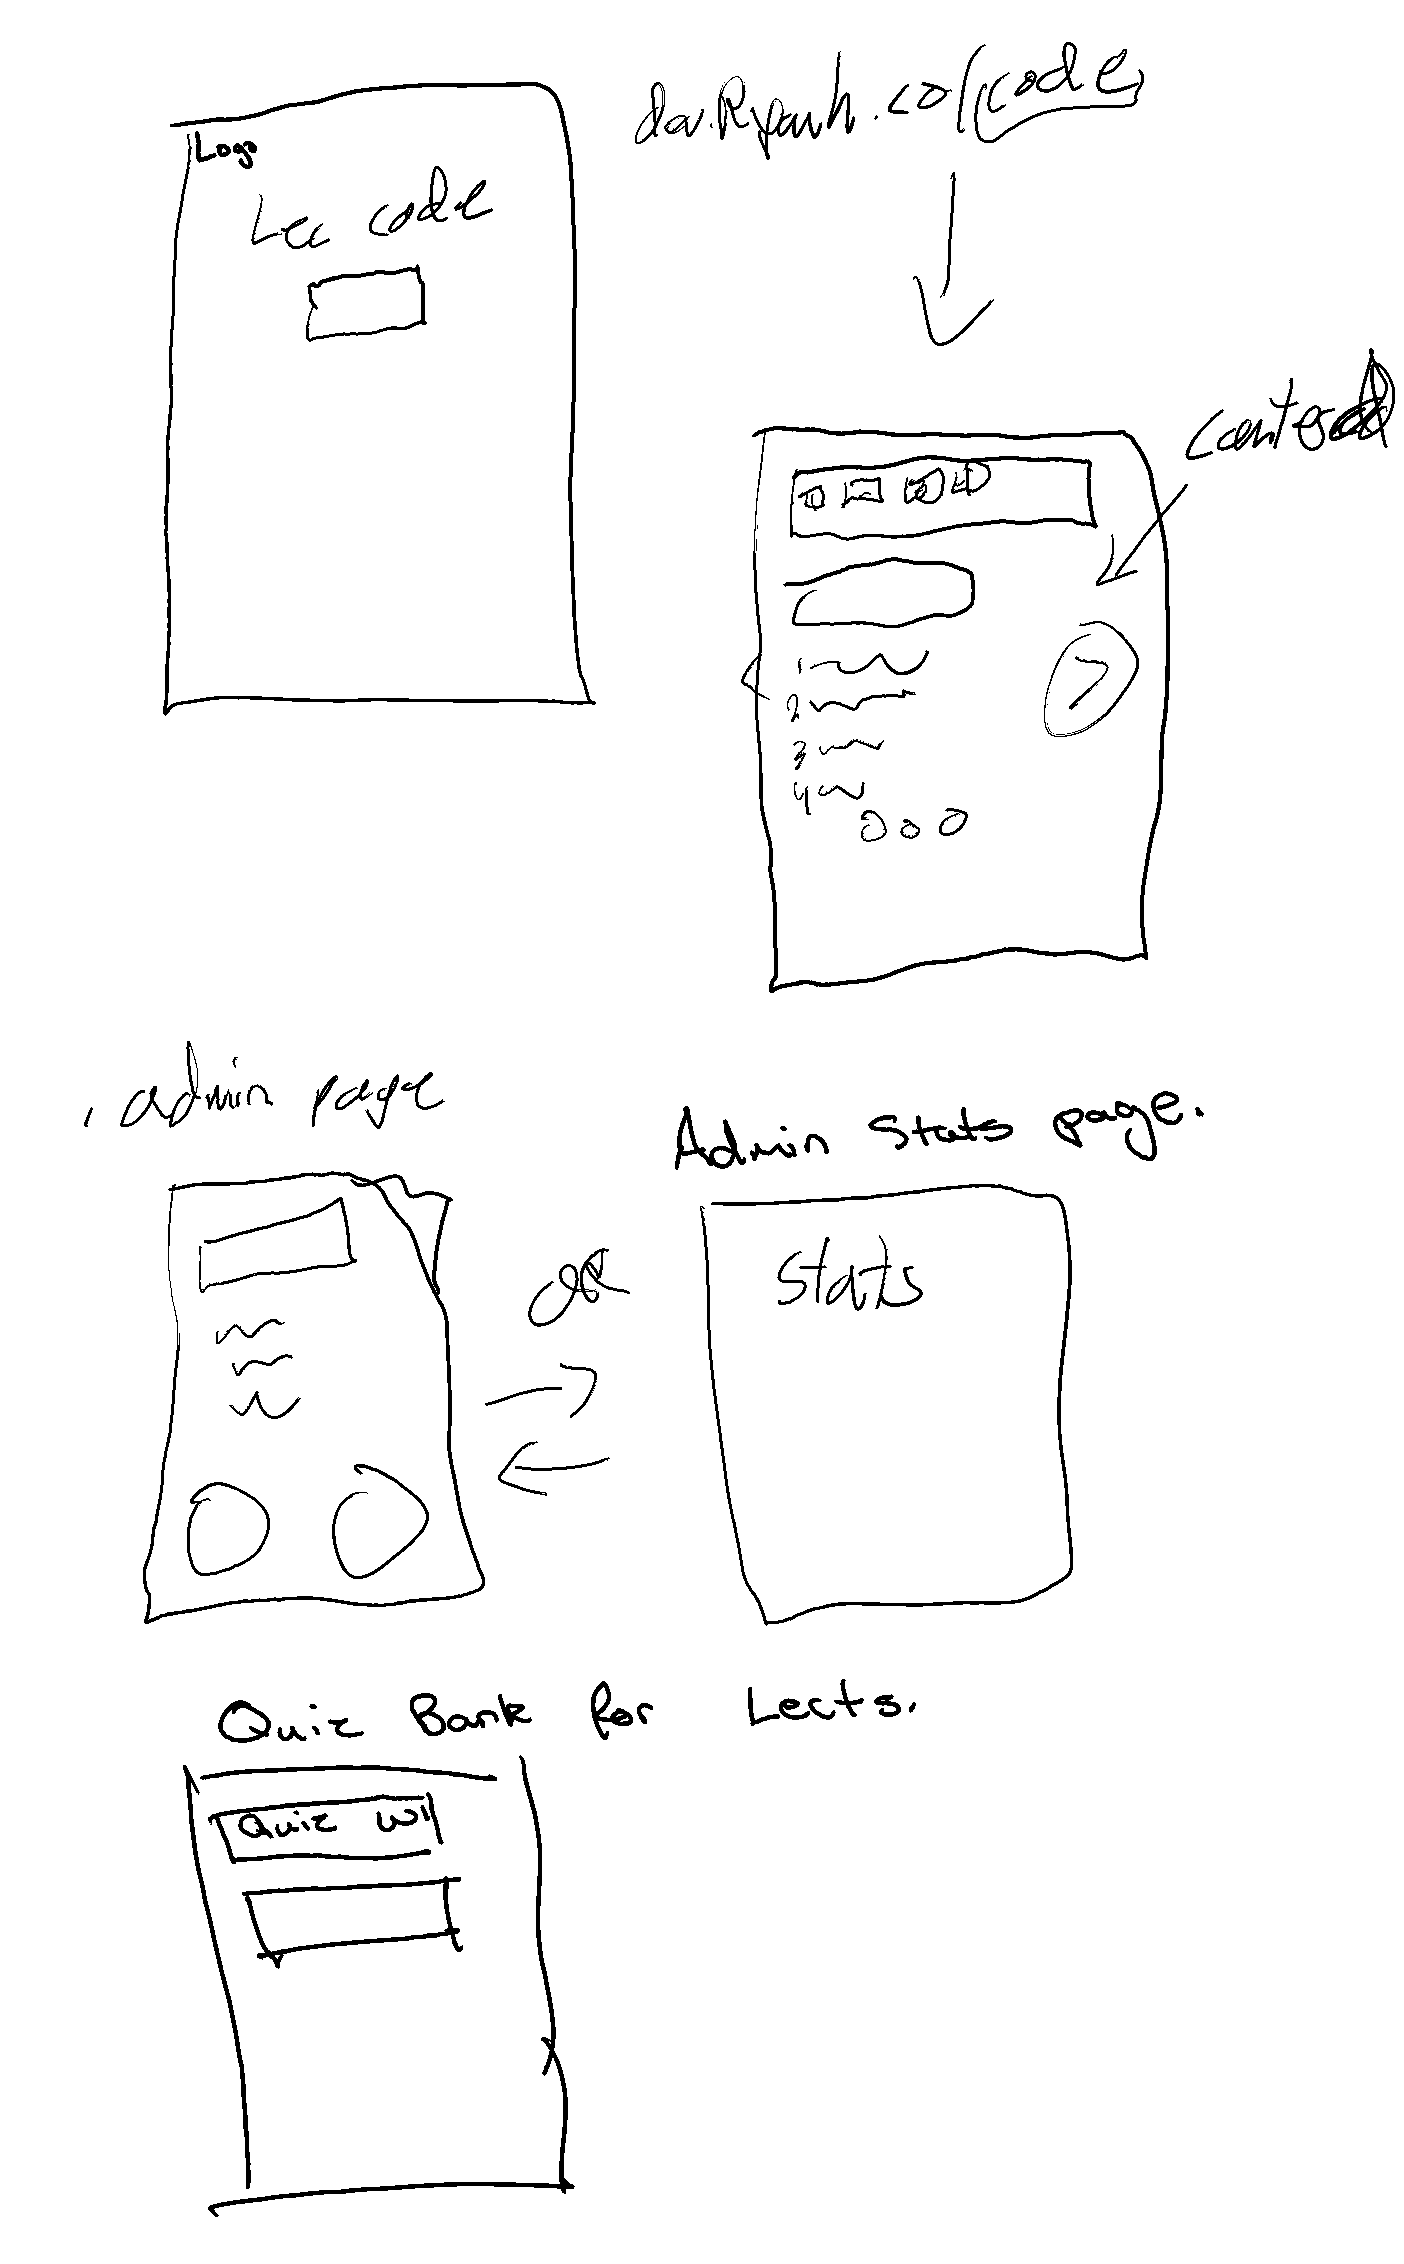 Logo
Lec code
/code
centered
1
2
3
4
admin page
OR
Admin Stats page.
Stats
Quiz Bank for Lects.
Quiz W1